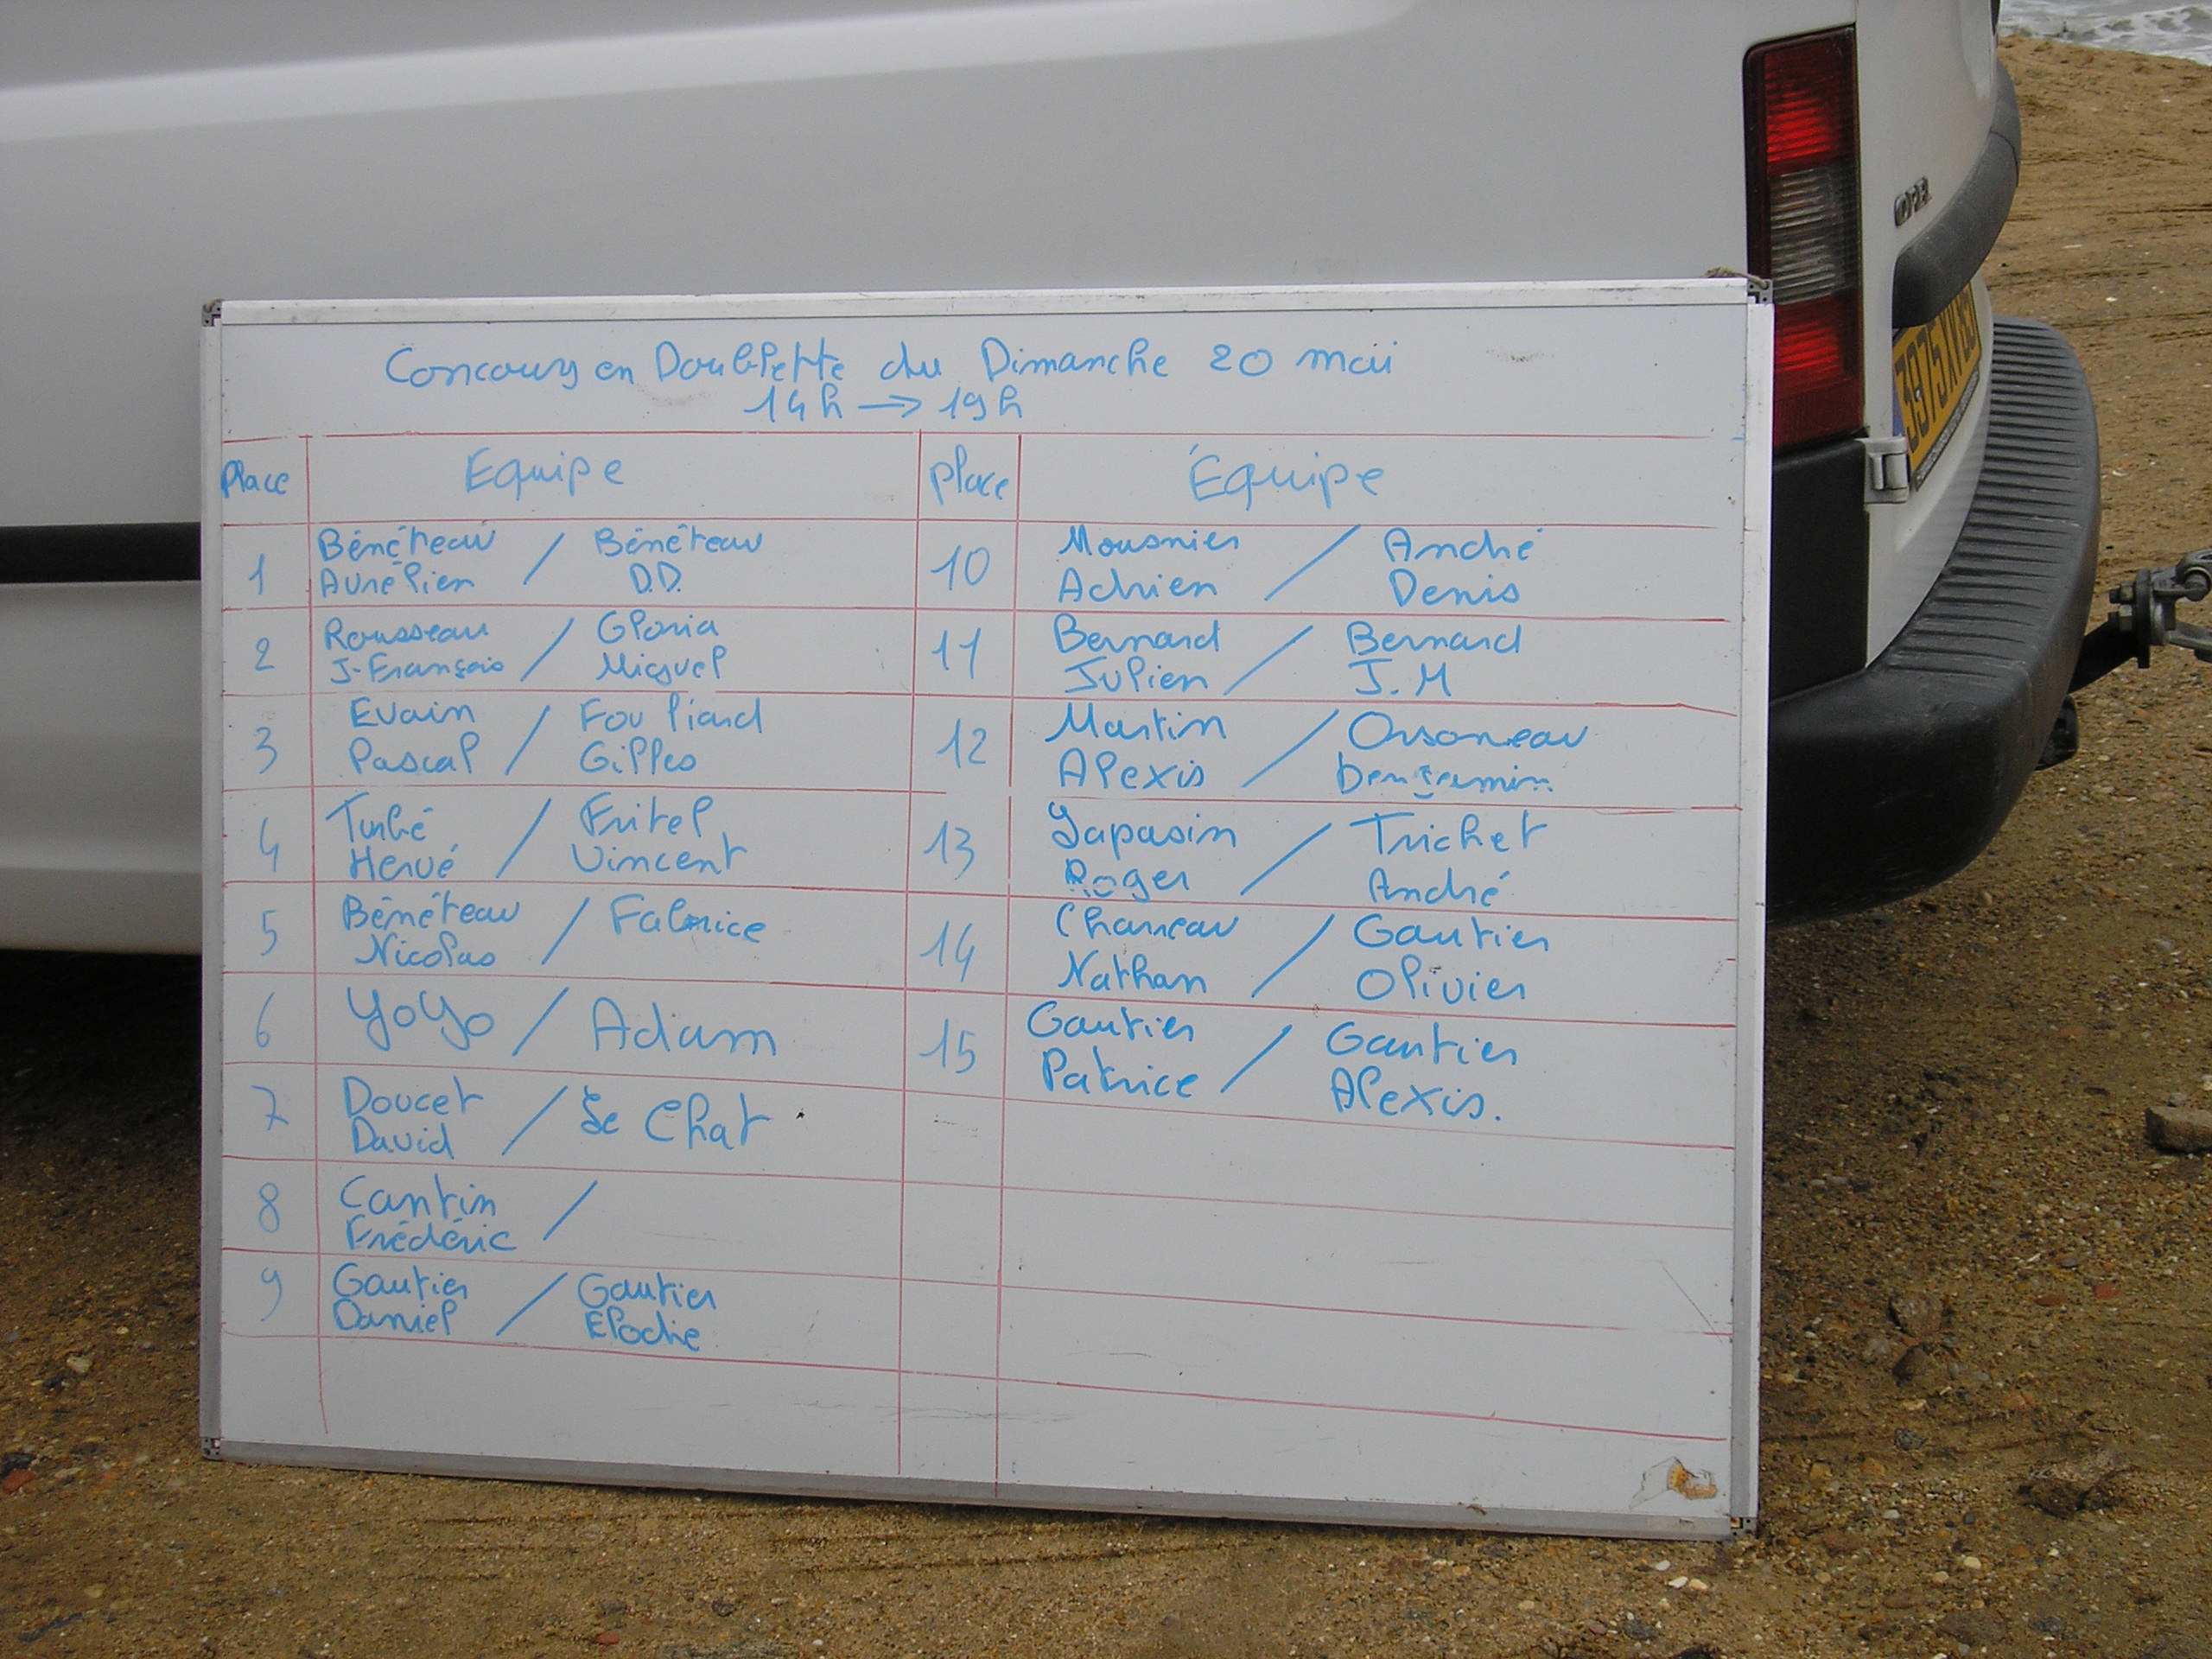 Concours en Doublette du Dimanche 20 mai
14h → 19h
Place Equipe Place Équipe
1 Bénéteau Aurélien / Bénéteau D.D.
2 Rousseau J-François / Gloria Miguel
3 Evain Pascal / Fouliard Gilles
4 Turbé Hervé / Fritel Vincent
5 Bénéteau Nicolas / Fabrice
6 YoYo / Adam
7 Doucet David / Le Chat
8 Cantin Frédéric /
9 Gautier Daniel / Gautier Elodie
10 Mousnier Adrien / André Denis
11 Bernard Julien / Bernard J.M
12 Martin Alexis / Orsoneau benjamin
13 Lapasin Roger / Trichet André
14 Charreau Nathan / Gautier Olivier
15 Gautier Patrice / Gautier Alexis.